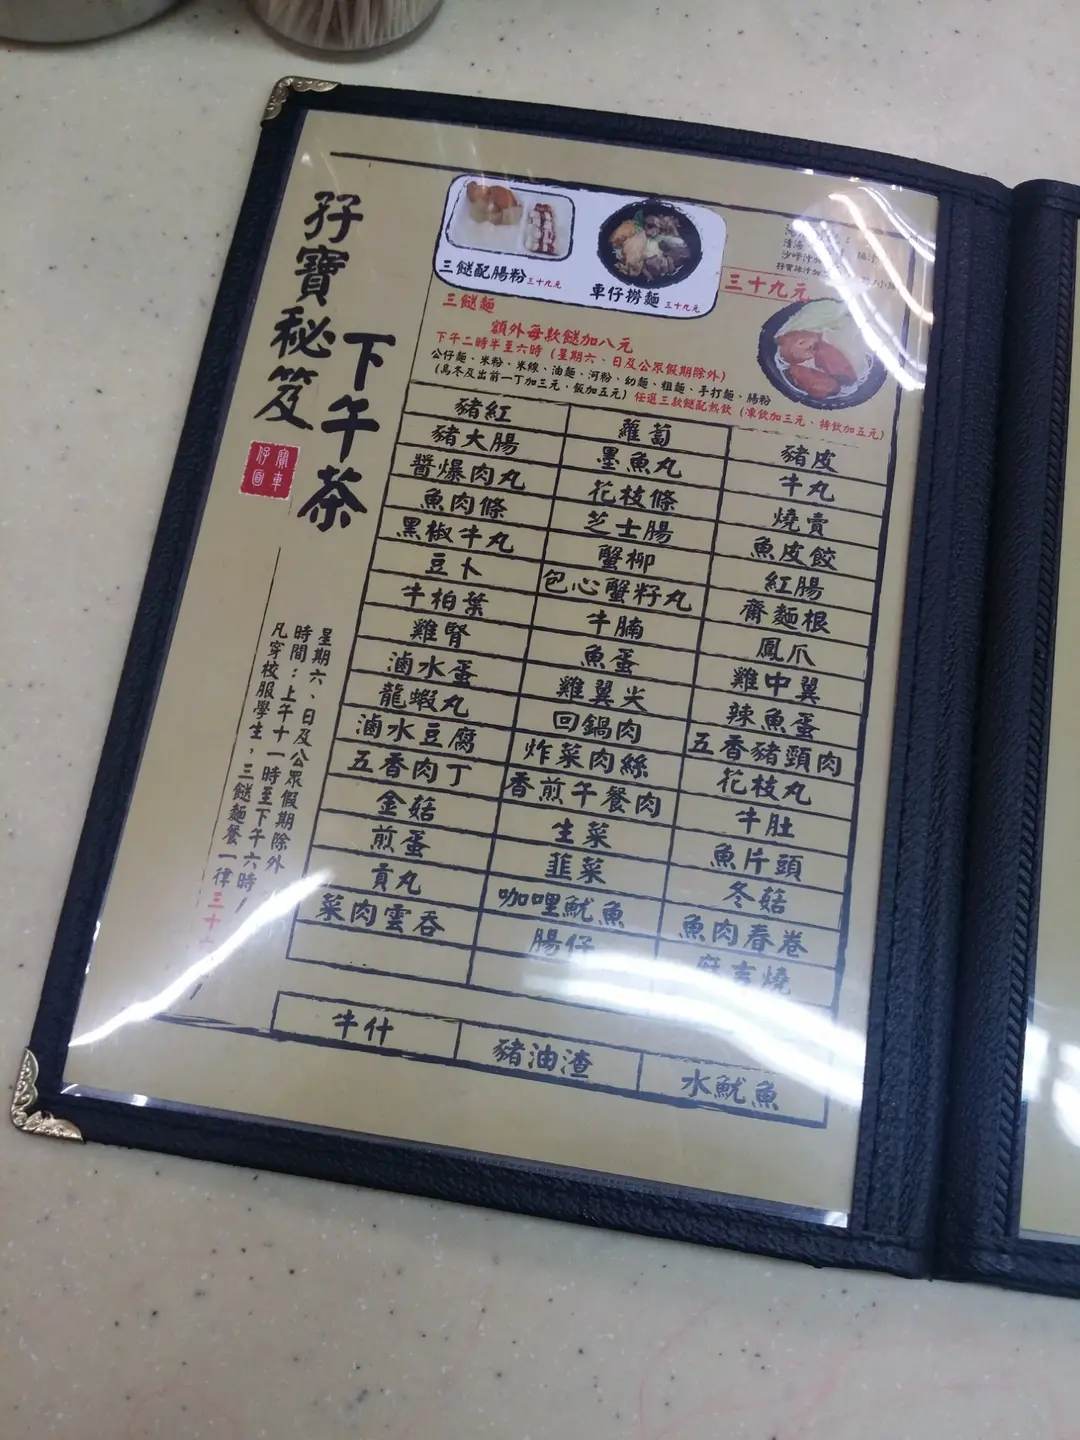 孖寶秘笈
下午茶
仔寶
圓車
三餸配腸粉 三十九元
車仔撈麵 三十九元
三餸麵
三十九元
額外每款餸加八元
下午二時半至六時 (星期六、日及公眾假期除外)
公仔麵、米粉、米線、油麵、河粉、幼麵、粗麵、手打麵、腸粉
(烏冬及出前一丁加三元，飯加五元) 任選三款餸配熱飲 (凍飲加三元、特飲加五元)
豬紅 蘿蔔 豬皮
豬大腸 墨魚丸 牛丸
醬爆肉丸 花枝條 燒賣
魚肉條 芝士腸 魚皮餃
黑椒牛丸 蟹柳 紅腸
豆卜 包心蟹籽丸 齋麵根
牛柏葉 牛腩 鳳爪
雞腎 魚蛋 雞中翼
滷水蛋 雞翼尖 辣魚蛋
龍蝦丸 回鍋肉 五香豬頸肉
滷水豆腐 炸菜肉絲 花枝丸
五香肉丁 香煎午餐肉 牛肚
金菇 生菜 魚片頭
煎蛋 韮菜 冬菇
貢丸 咖哩魷魚 魚肉春卷
菜肉雲吞 腸仔 麻吉燒
牛什 豬油渣 水魷魚
星期六、日及公眾假期除外
時間：上午十一時至下午六時！
凡穿校服學生，三餸麵餐一律三十